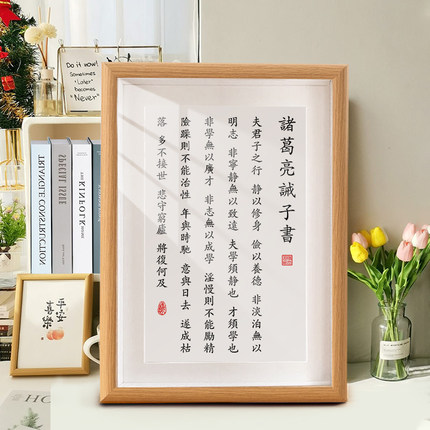 諸葛亮誡子書
夫君子之行 靜以修身 儉以養德 非淡泊無以
明志 非寧靜無以致遠 夫學須靜也 才須學也
非學無以廣才 非志無以成學 淫慢則不能勵精
險躁則不能治性 年與時馳 意與日去 遂成枯
落 多不接世 悲守窮廬 將復何及
Do it now!
Sometimes
"Later"
becomes
"Never"
KINFOLK
平安
喜樂